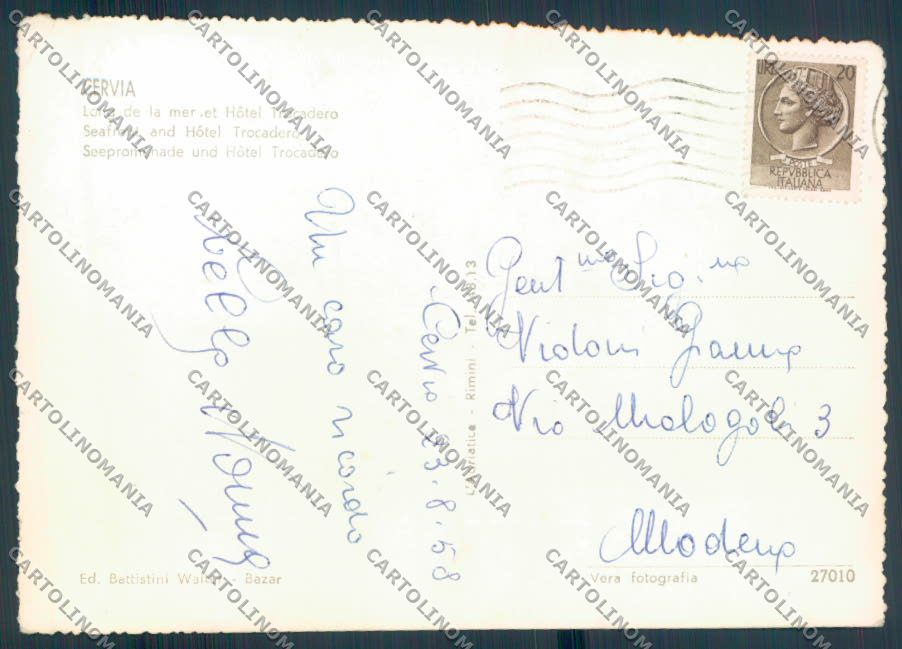 CERVIA
Lato de la mer et Hôtel Trocadero
Seafront and Hôtel Trocadero
Seepromenade und Hôtel Trocadero
LIRE 20
POSTE
REPVBBLICA
ITALIANA
Cervia 23.8.58
Un caro ricordo
Gent.ma Sig.na
Vidoni
Via Malagoli 3
Modena
L'Adriatica - Rimini - Tel.
Ed. Battistini Walter - Bazar
Vera fotografia
27010
CARTOLINOMANIA